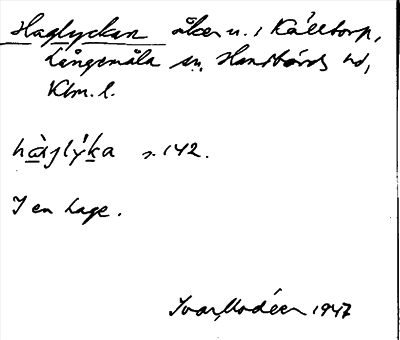 Haglyckan åker u. i Källtorp,
Långemåla sn, Handbörds hd,
Klm. l.
hàglýka s. 142.
I en hage.
Ivar Modéer 1947